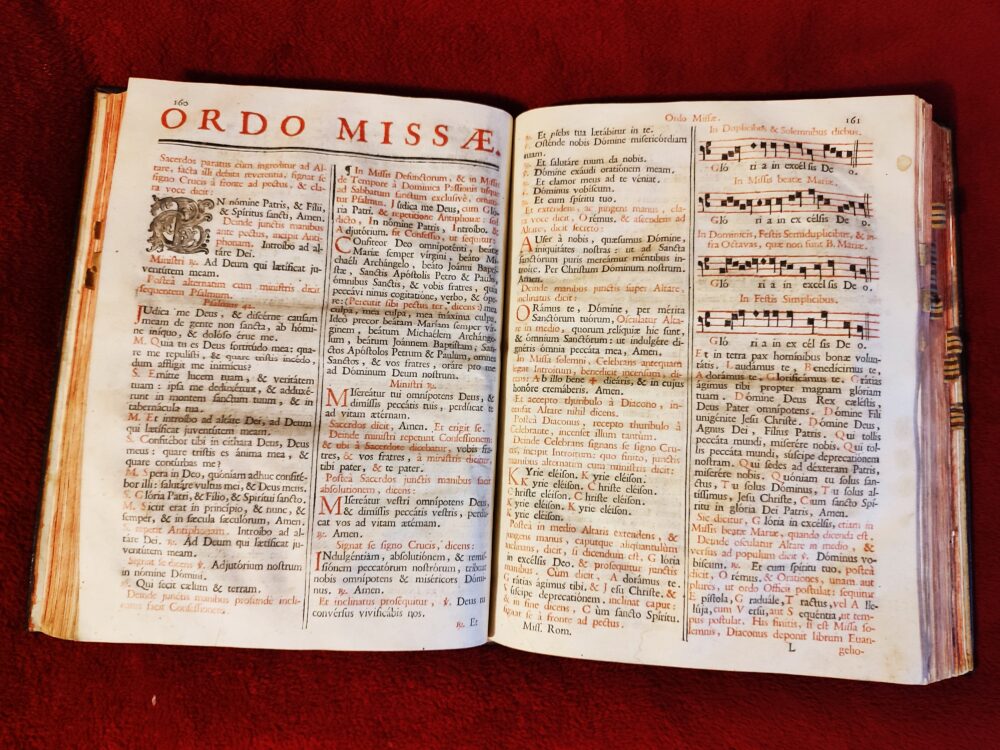 160
ORDO MISSÆ.
Sacerdos paratus cum ingreditur ad Al-
tare, facta illi debita reverentia, signat se
signo Crucis à fronte ad pectus, & cla-
ra voce dicit:
IN nómine Patris, & Fílii,
& Spíritus sancti, Amen.
Deinde junctis manibus
ante pectus, incipit Anti-
phonam. Introíbo ad al-
táre Dei.
Ministri ℟. Ad Deum qui lætíficat ju-
ventútem meam.
Postea alternatim cum ministris dicit
sequentem Psalmum.
Psalmus 42.
JUdica me Deus, & discérne causam
meam de gente non sancta, ab hómi-
ne iníquo, & dolóso érue me.
M. Quia tu es Deus fortitúdo mea: qua-
re me repulísti, & quare tristis incédo,
dum afflígit me inimícus?
S. Emítte lucem tuam, & veritátem
tuam: ipsa me deduxérunt, & adduxé-
runt in montem sanctum tuum, & in
tabernácula tua.
M. Et introíbo ad altáre Dei, ad Deum
qui lætíficat juventútem meam.
S. Confitébor tibi in cíthara Deus, Deus
meus: quare tristis es ánima mea, &
quare contúrbas me?
M. Spera in Deo, quóniam adhuc confité-
bor illi: salutáre vultus mei, & Deus meus.
S. Glória Patri, & Fílio, & Spirítui sancto.
M. Sicut erat in princípio, & nunc, &
semper, & in sæcula sæculórum, Amen.
repetit Antiphonam. Introíbo ad al-
táre Dei. ℟. Ad Deum qui lætíficat ju-
ventútem meam.
Signat se dicens ℣. Adjutórium nostrum
in nómine Dómini.
℟. Qui fecit cælum & terram.
Deinde junctis manibus profunde incli-
natus facit Confessionem.
¶ In Missis Defunctorum, & in Missis
de Tempore à Dominica Passionis usque
ad Sabbatum sanctum exclusivè, omitti-
tur Psalmus. Júdica me Deus, cum Gló-
ria Patri. & repetitione Antiphonæ: sed
dicto, In nómine Patris, Introíbo. &
Adjutórium, fit Confessio, ut sequitur:
COnfíteor Deo omnipoténti, beátæ
Maríæ semper vírgini, beáto Mi-
chaéli Archángelo, beáto Joánni Baptí-
stæ, Sanctis Apóstolis Petro & Paulo,
ómnibus Sanctis, & vobis fratres, quia
peccávi nimis cogitatióne, verbo, & ópe-
re: (Percutit sibi pectus ter, dicens:) mea
culpa, mea culpa, mea máxima culpa.
Ideo precor beátam Maríam semper vír-
ginem, beátum Michaélem Archánge-
lum, beátum Joánnem Baptístam, San-
ctos Apóstolos Petrum & Paulum, omnes
Sanctos, & vos fratres, oráre pro me
ad Dóminum Deum nostrum.
Ministri ℟.
MIsereátur tui omnípotens Deus, &
dimíssis peccátis tuis, perdúcat te
ad vitam ætérnam.
Sacerdos dicit, Amen. Et erigit se.
Deinde ministri repetunt Confessionem:
& ubi à Sacerdote dicebatur, vobis fra-
tres, & vos fratres, à ministris dicitur,
tibi pater, & te pater.
Postea Sacerdos junctis manibus facit
absolutionem, dicens:
MIsereátur vestri omnípotens Deus,
& dimíssis peccátis vestris, perdú-
cat vos ad vitam ætérnam.
℟. Amen.
Signat se signo Crucis, dicens:
INdulgéntiam, absolutiónem, & remis-
siónem peccatórum nostrórum, tríbuat
nobis omnípotens & miséricors Dómi-
nus. ℟. Amen.
Et inclinatus prosequitur, ℣. Deus tu
convérsus vivificábis nos.
℟. Et
Ordo Missæ.
161
℟. Et plebs tua lætábitur in te.
℣. Osténde nobis Dómine misericórdiam
tuam.
℟. Et salutáre tuum da nobis.
℣. Dómine exáudi oratiónem meam.
℟. Et clamor meus ad te véniat.
℣. Dóminus vobíscum.
℟. Et cum spíritu tuo.
Et extendens, & jungens manus, cla-
ra voce dicit, Orémus, & ascendens ad
Altare, dicit secretò:
AUfer à nobis, quæsumus Dómine,
iniquitátes nostras: ut ad Sancta
sanctórum puris mereámur méntibus in-
troíre. Per Christum Dóminum nostrum.
Amen.
Deinde manibus junctis super Altare,
inclinatus dicit:
ORámus te, Dómine, per mérita
Sanctórum tuórum, Osculatur Alta-
re in medio, quorum relíquiæ hîc sunt,
& ómnium Sanctórum: ut indulgére di-
gnéris ómnia peccáta mea, Amen.
In Missa solemni, Celebrans antequam
legat Introitum, benedicit incensum, di-
cens: Ab illo bene ✠ dicáris, & in cujus
honóre cremáberis, Amen.
Et accepto thuribulo à Diacono, in-
censat Altare nihil dicens.
Postea Diaconus, recepto thuribulo à
Celebrante, incensat illum tantùm.
Deinde Celebrans signans se signo Cru-
cis, incipit Introitum: quo finito, junctis
manibus alternatim cum ministris dicit:
KYrie eléison. Kyrie eléison.
Kyrie eléison. Christe eléison.
Christe eléison. Christe eléison.
Kyrie eléison. Kyrie eléison.
Kyrie eléison.
Postea in medio Altaris extendens, &
jungens manus, caputque aliquantulum
inclinans, dicit, si dicendum est, Glória
in excélsis Deo. & prosequitur junctis
manibus. Cum dicit, Adorámus te.
Grátias ágimus tibi, & Jesu Christe, &
Súscipe deprecatiónem. inclinat caput:
& in fine dicens, Cum sancto Spíritu.
signat se à fronte ad pectus.
Miss. Rom.
In Duplicibus & Solemnibus diebus.
Gló ri a in excél sis De o.
In Missis beatæ Mariæ.
Gló ri a in ex célsis De o.
In Dominicis, Festis Semiduplicibus, & in-
fra Octavas, quæ non sunt B. Mariæ.
Gló ri a in excélsis De o.
In Festis Simplicibus.
Gló ri a in ex cél sis De o.
Et in terra pax homínibus bonæ volun-
tátis. Laudámus te, Benedícimus te,
Adorámus te. Glorificámus te. Grátias
ágimus tibi propter magnam glóriam
tuam. Dómine Deus Rex cæléstis,
Deus Pater omnípotens. Dómine Fili
unigénite Jesu Christe. Dómine Deus,
Agnus Dei, Fílius Patris. Qui tollis
peccáta mundi, miserére nobis. Qui tol-
lis peccáta mundi, súscipe deprecatiónem
nostram. Qui sedes ad déxteram Patris,
miserére nobis. Quóniam tu solus san-
ctus, Tu solus Dóminus, Tu solus al-
tíssimus, Jesu Christe, Cum sancto Spí-
ritu in glória Dei Patris, Amen.
Sic dicitur, Glória in excélsis, etiam in
Missis beatæ Mariæ, quando dicenda est.
Deinde osculatur Altare in medio, &
versus ad populum dicit ℣. Dóminus vo-
bíscum. ℟. Et cum spíritu tuo, postea
dicit, Orémus, & Orationes, unam aut
plures, ut ordo Officii postulat: sequitur
Epístola, Graduále, Tractus, vel Alle-
lúja, cum Versu, aut Sequéntia, ut tem-
pus postulat. His finitis, si est Missa so-
lemnis, Diaconus deponit librum Euan-
L
gelio-